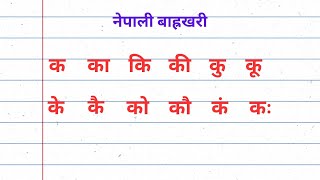 नेपाली बाह्रखरी
क का कि की कु कू
के कै को कौ कं कः